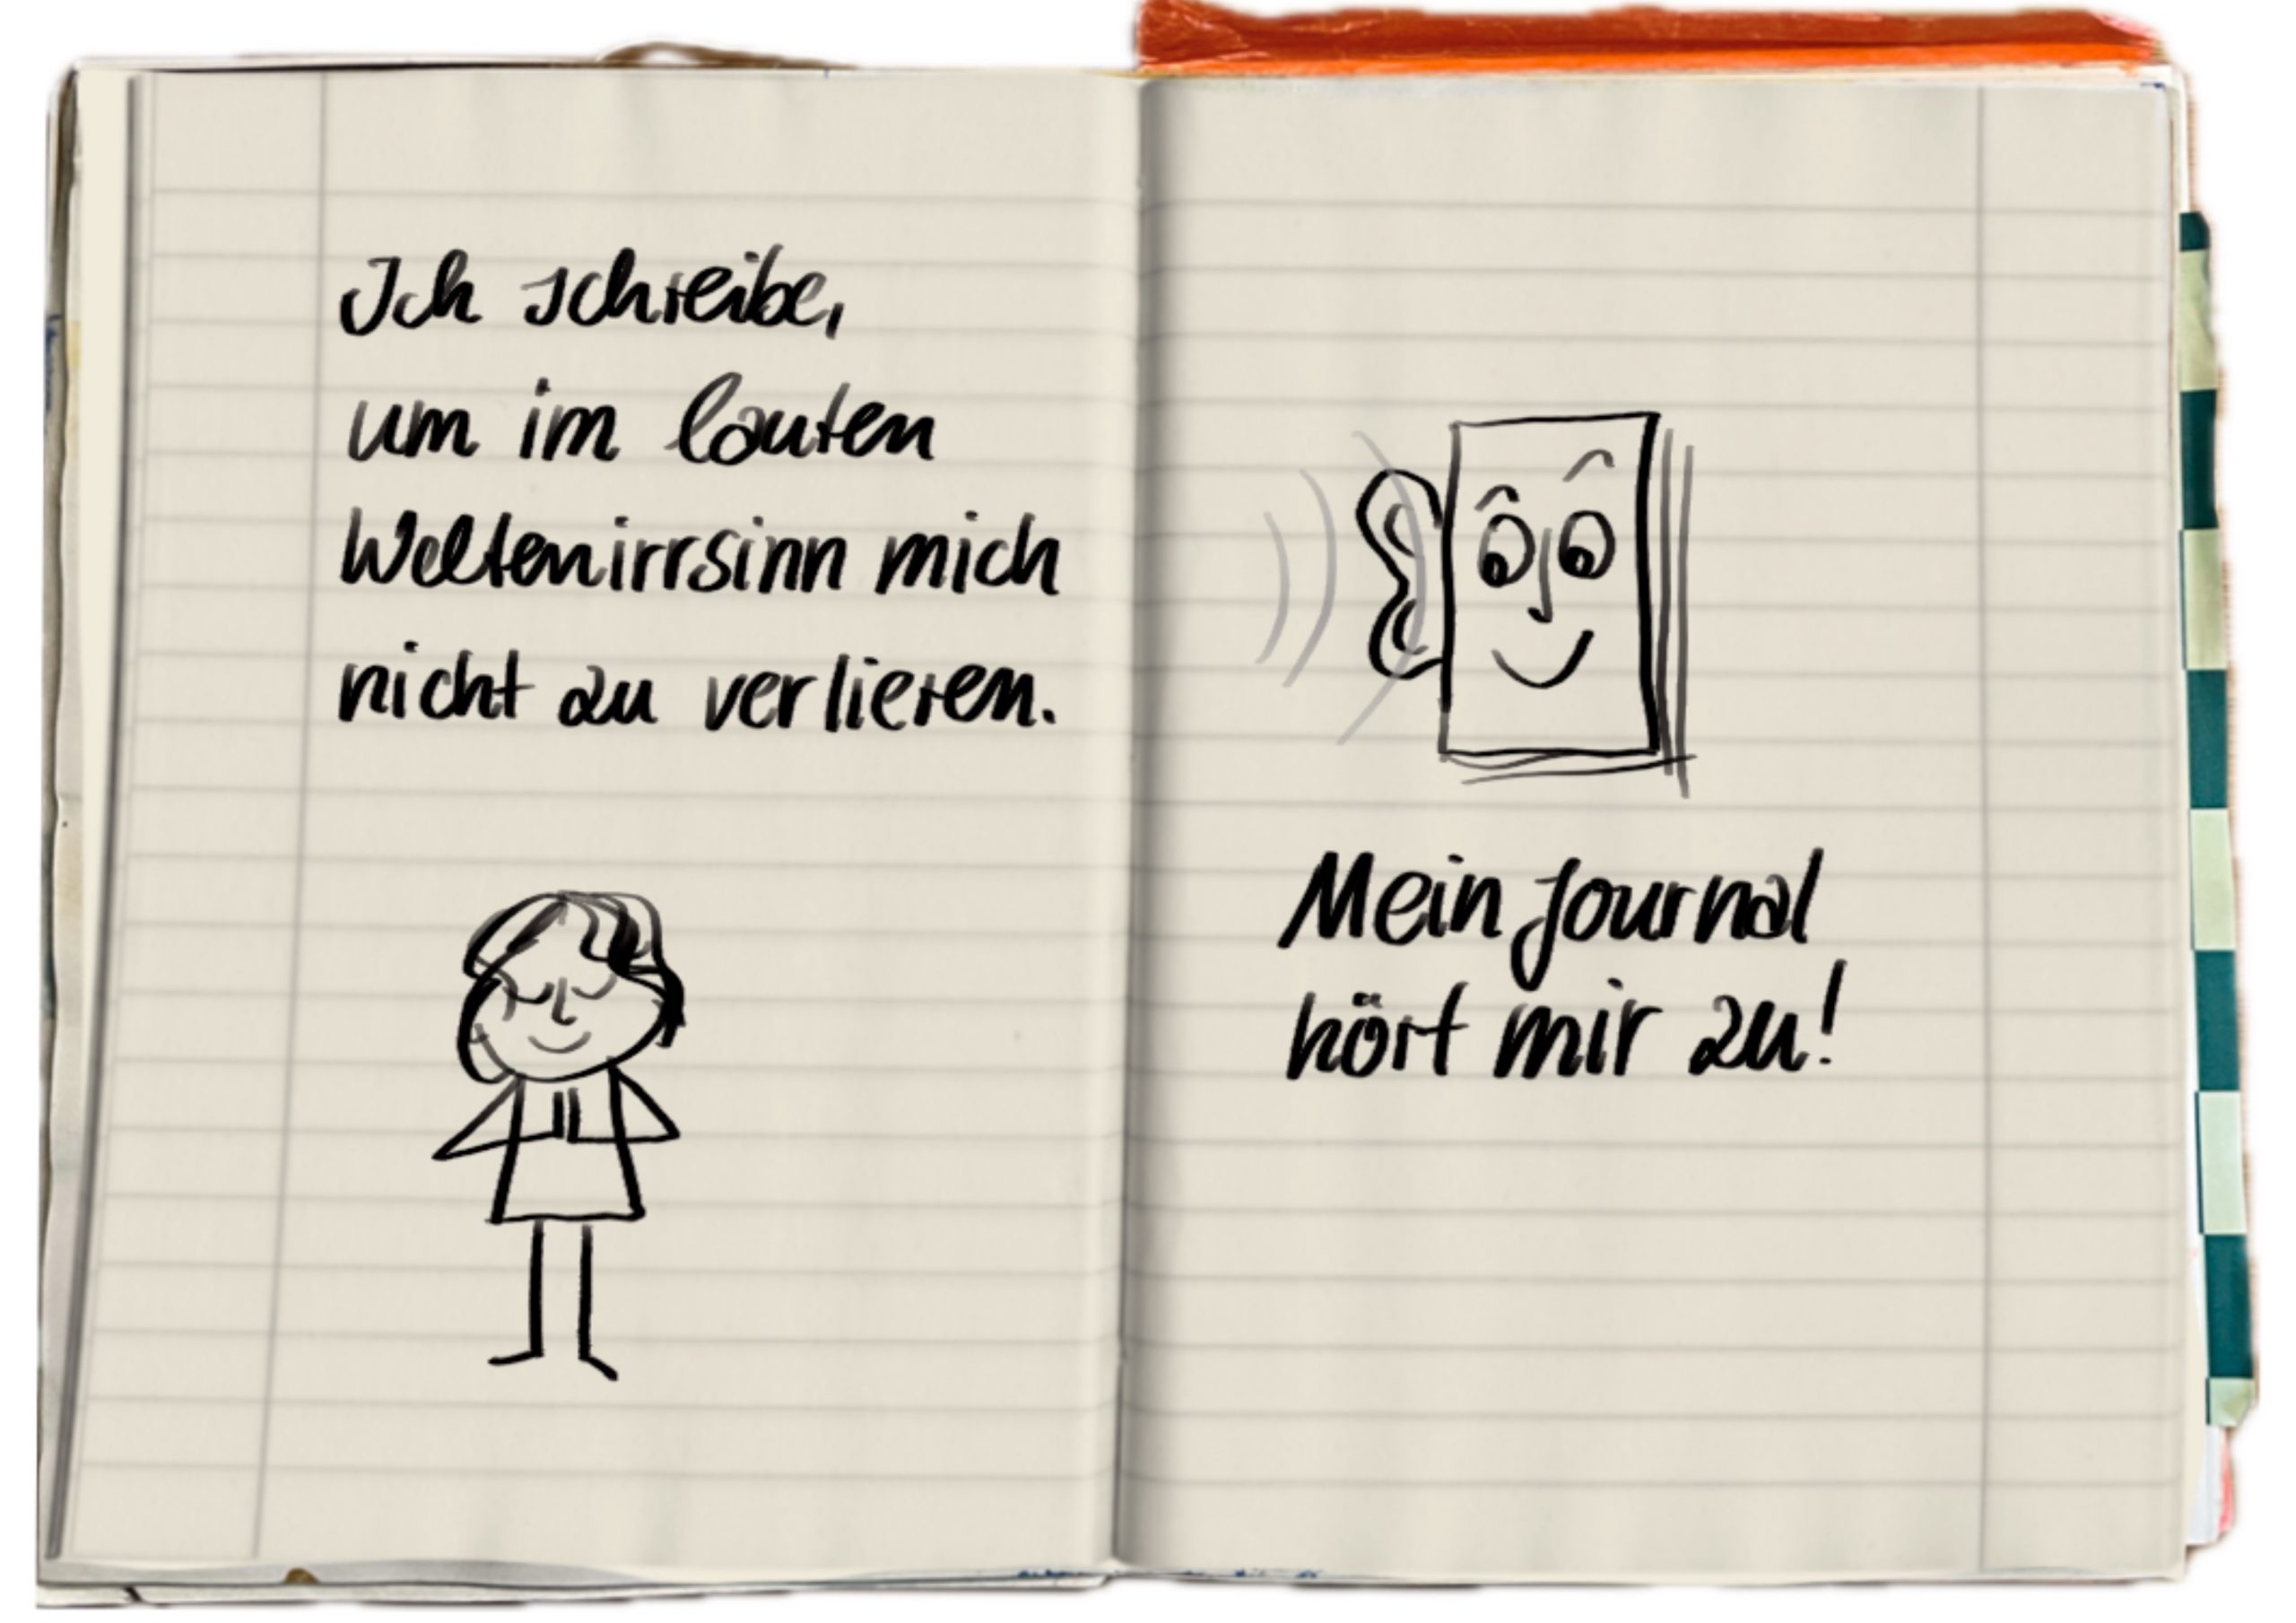 Ich schreibe,
um im lauten
Weltenirrsinn mich
nicht zu verlieren.
Mein Journal
hört mir zu!